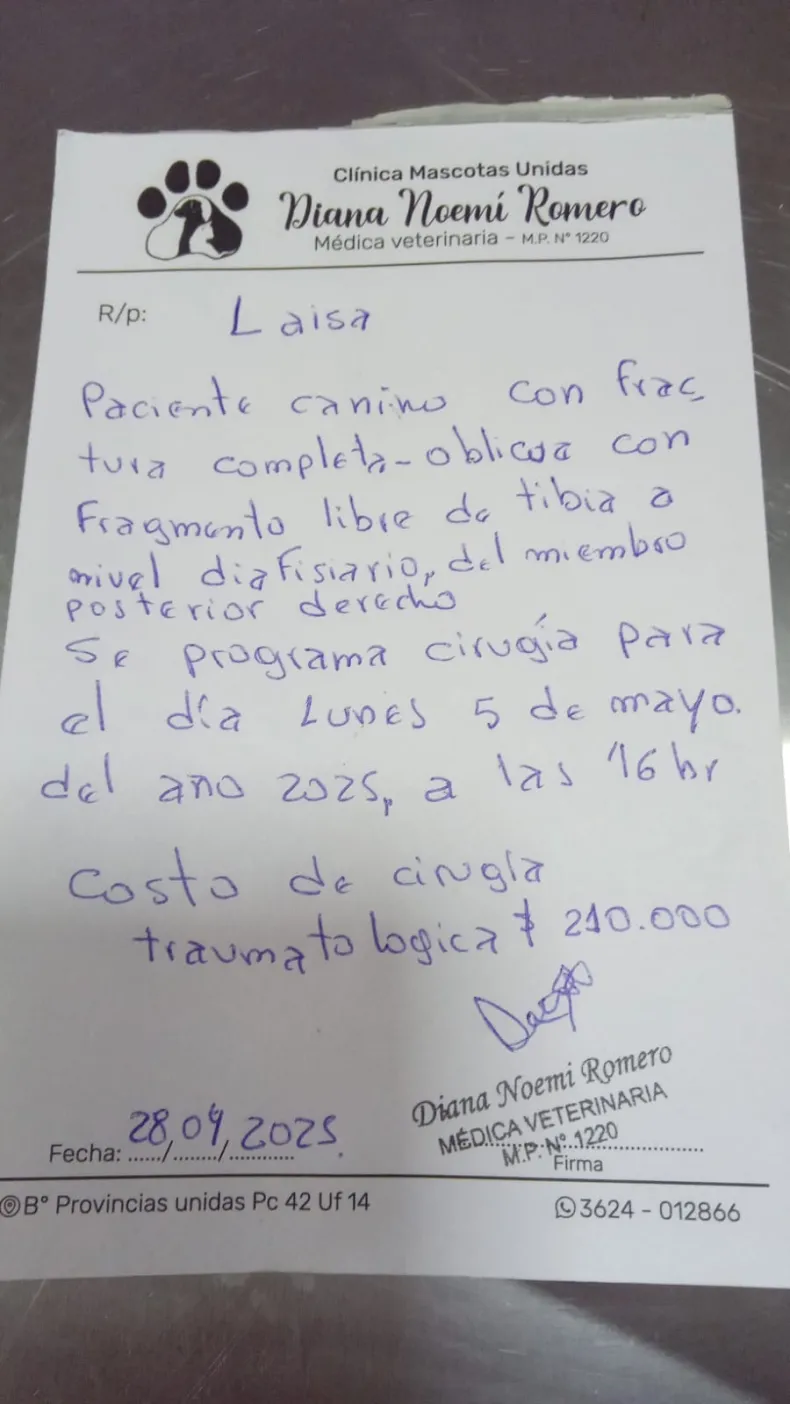 Clínica Mascotas Unidas
Diana Noemí Romero
Médica veterinaria - M.P. N° 1220
R/p: Laisa
Paciente canino con frac
tura completa-oblicua con
Fragmento libre de tibia a
nivel diafisiario, del miembro
posterior derecho
Se programa cirugía para
el día Lunes 5 de mayo.
del año 2025, a las 16 hr
Costo de cirugía
traumatologica $ 210.000
Diana Noemi Romero
MÉDICA VETERINARIA
M.P. N°. 1220
Fecha: 28/04/2025.
Firma
B° Provincias unidas Pc 42 Uf 14
3624 - 012866